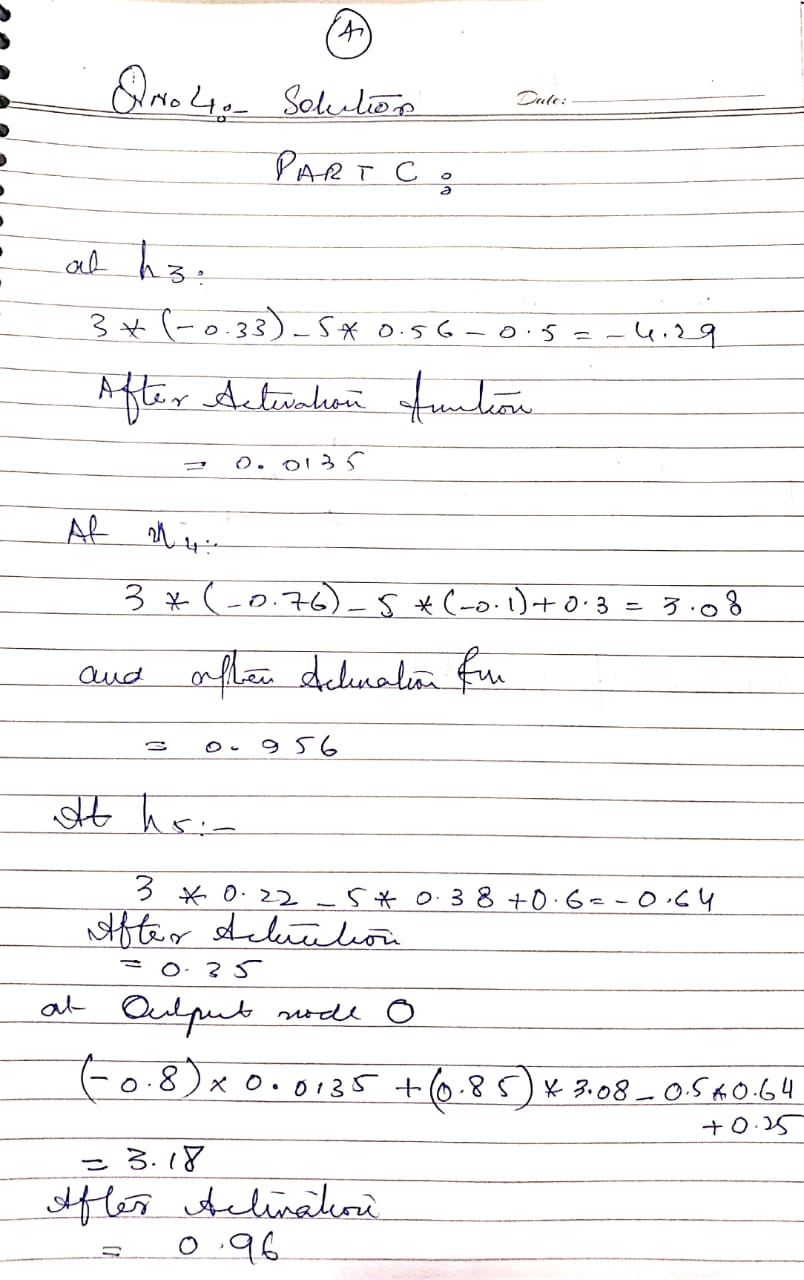 A
Q No 4:- Solution Date:
PART C :
at h3:
3 * (-0.33) - 5 * 0.56 - 0.5 = -4.29
After Activation function
= 0.0135
At h4:-
3 * (-0.76) - 5 * (-0.1) + 0.3 = 3.08
and after Activation fun
= 0.956
At h5:-
3 * 0.22 - 5 * 0.38 + 0.6 = -0.64
After Activation
= 0.35
at Output node O
(-0.8) x 0.0135 + (0.85) * 3.08 - 0.5 * 0.64
+ 0.25
= 3.18
After Activation
= 0.96